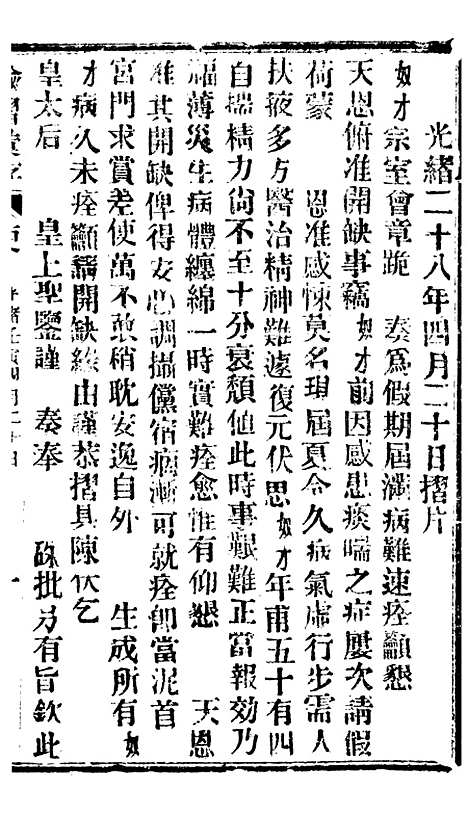 光緒二十八年四月二十日摺片
奴才宗室會章跪　奏爲假期屆滿病難速痊籲懇
天恩俯准開缺事竊奴才前因感患痰喘之症屢次請假
荷蒙　恩准感悚莫名現屆夏令久病氣虛行步需人
扶掖多方醫治精神難遽復元伏思奴才年甫五十有四
自揣精力尙不至十分衰頹値此時事艱難正當報效乃
福薄災生病體纏綿一時實難痊愈惟有仰懇　天恩
准其開缺俾得安心調攝儻宿疴漸可就痊卽當泥首
宮門求賞差使萬不敢稍耽安逸自外　生成所有奴
才病久未痊籲請開缺緣由謹恭摺具陳伏乞
皇太后　皇上聖鑒謹　奏奉　硃批另有旨欽此